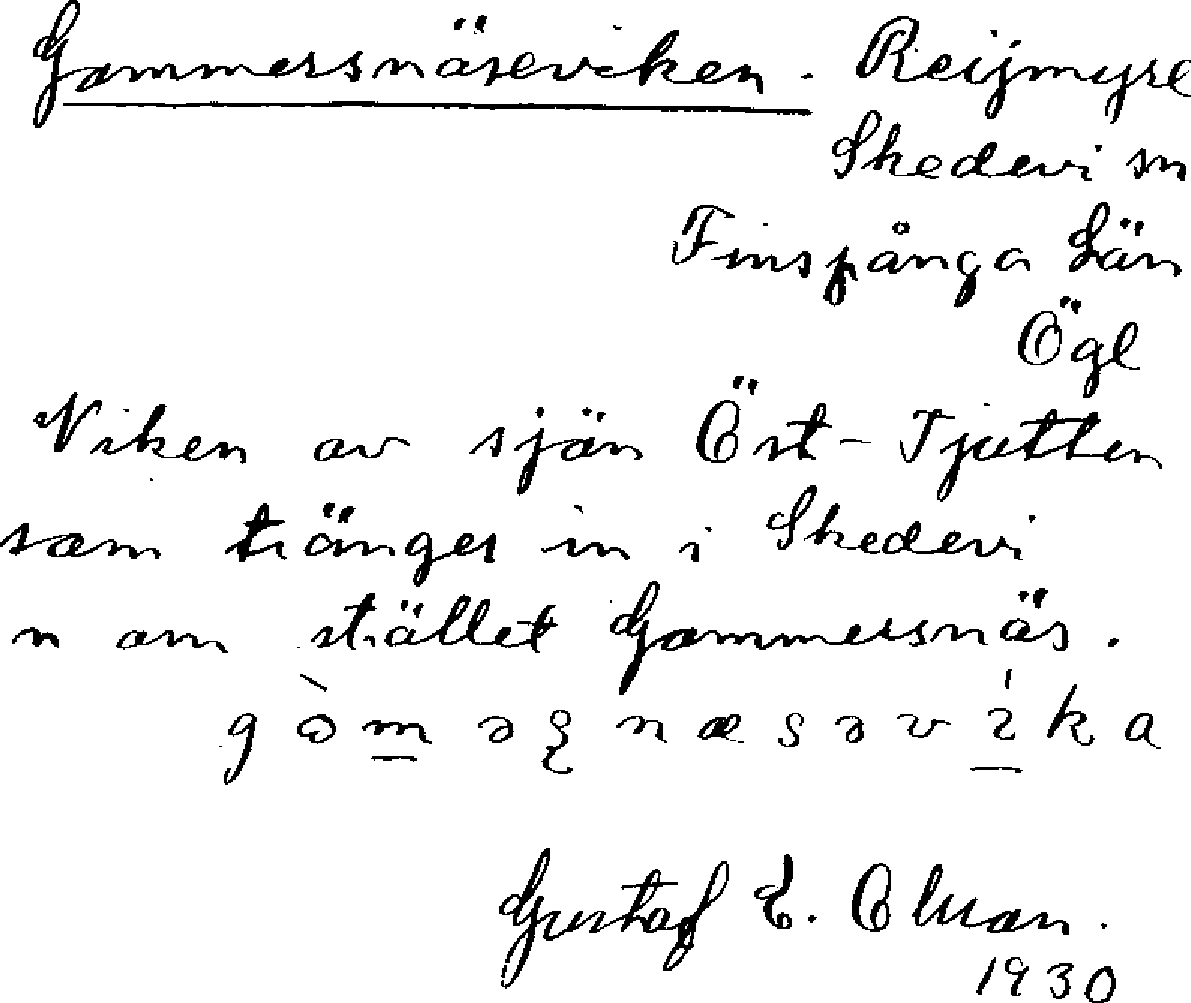 Gommersnäseviken. Reijmyre
Skedevi sn
Finspånga Län
Ögl
Viken av sjön Öst-Tjutten
som tränger in i Skedevi
n om stället Gommersnäs.
Gustaf E.
1930